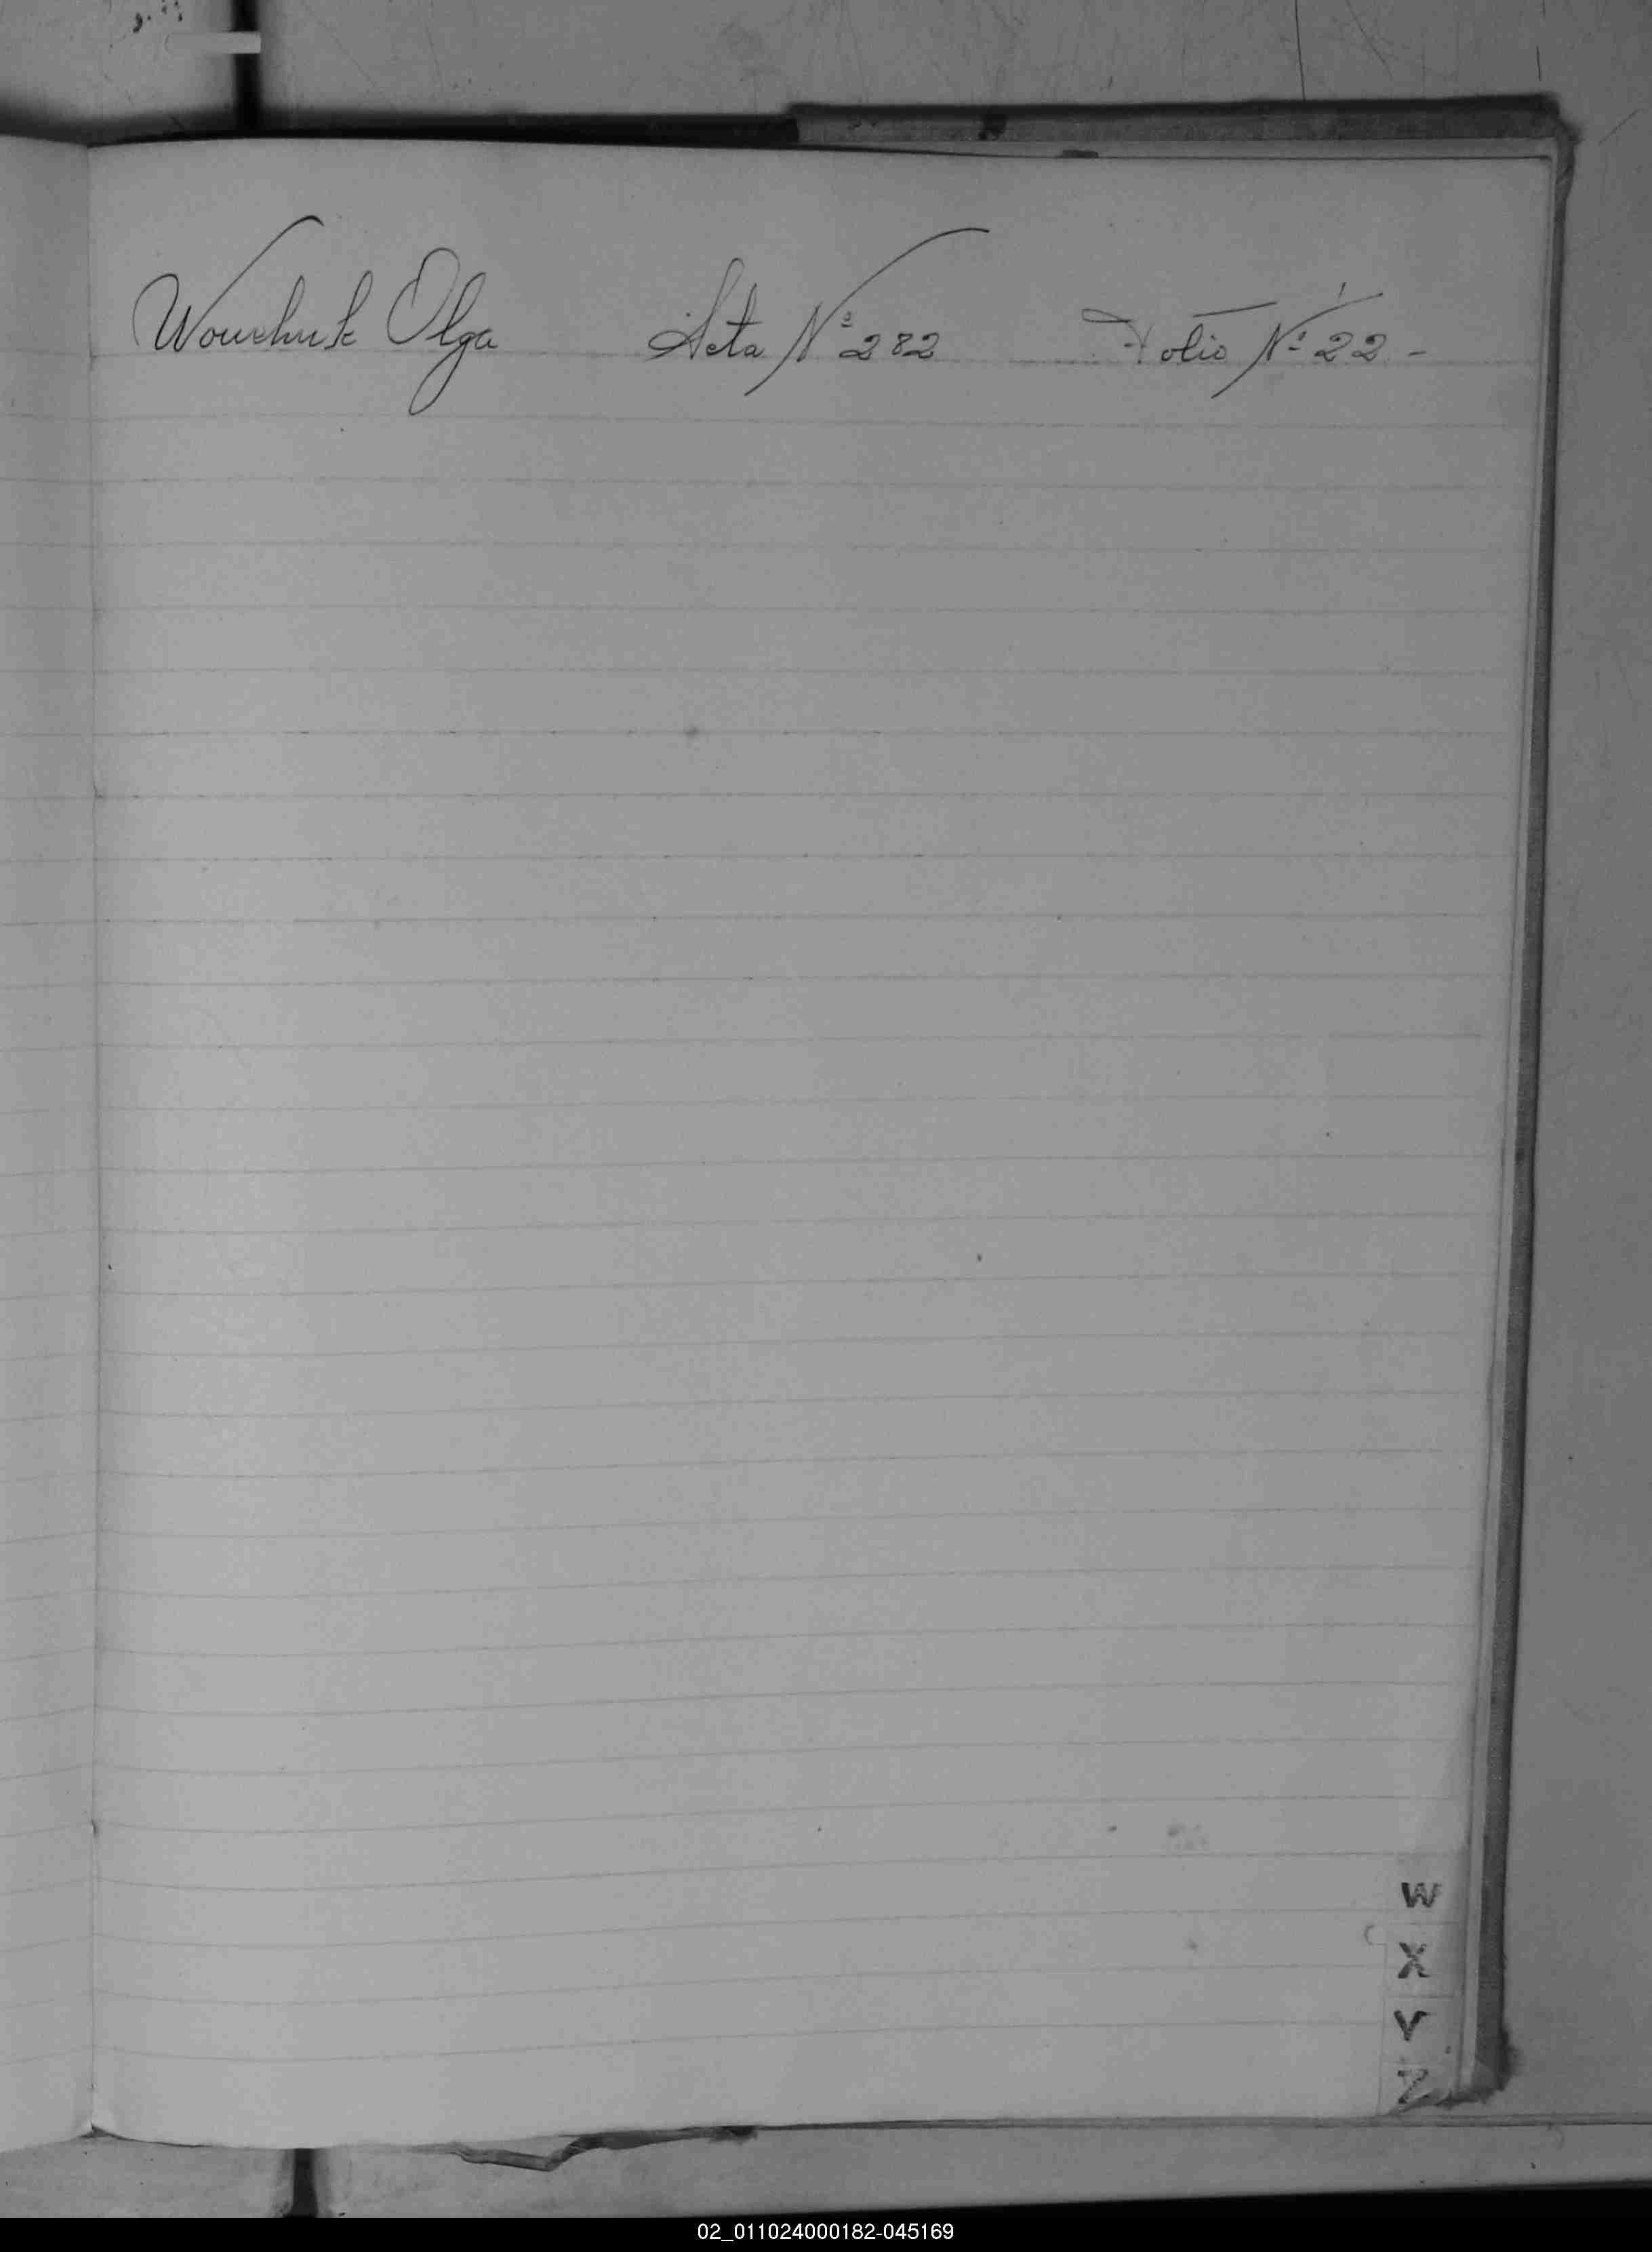 Wowchuk Olga Acta Nº 282 Folio Nº 22 -
W
X
Y
Z
02_011024000182-045169